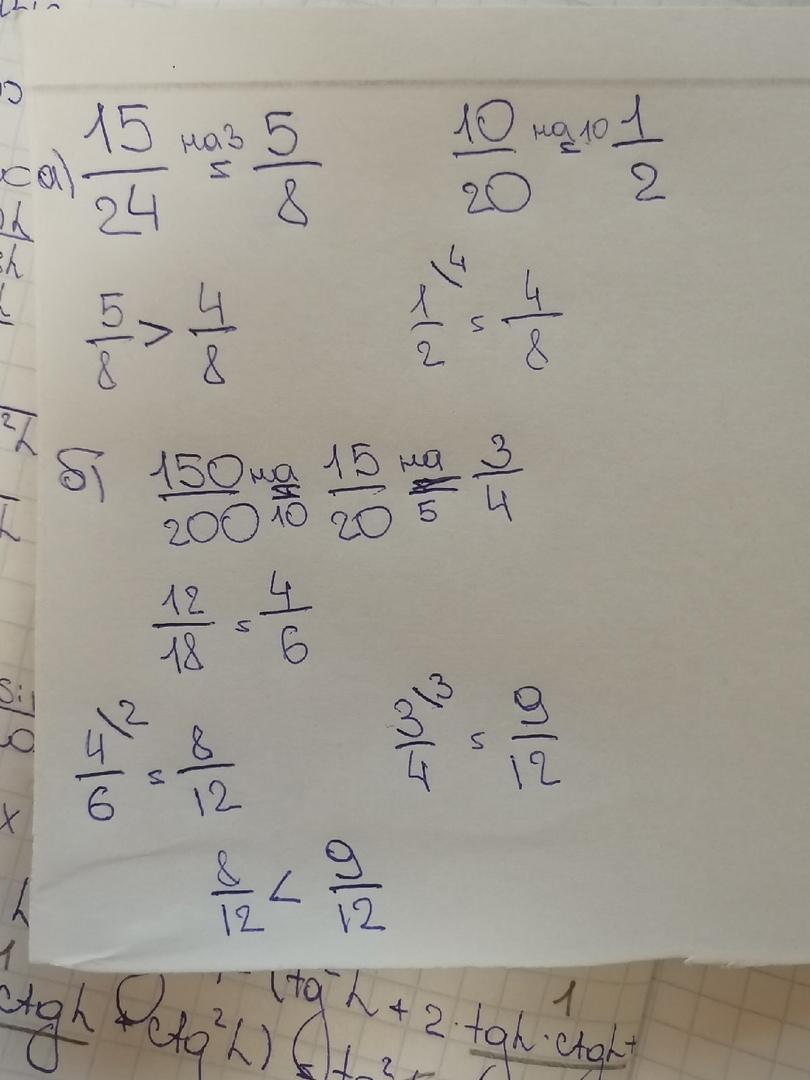 а) 15/24 на 3 = 5/8    10/20 на 10 = 1/2
5/8 > 4/8    1/2 \4 = 4/8
б) 150/200 на 10 = 15/20 на 5 = 3/4
12/18 = 4/6
4/6 \2 = 8/12    3/4 \3 = 9/12
8/12 < 9/12
1
+ 2·tgL·ctgL+
ctgL
ctg²L)